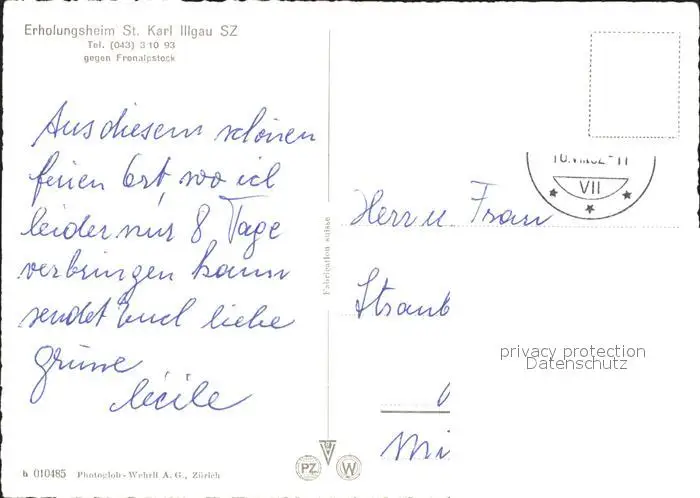 Erholungsheim St. Karl Illgau SZ
Tel. (043) 3 10 93
gegen Fronalpstock
Aus diesem schönen
ferien Ort, wo ich
leider nur 8 Tage
verbringen kann
sendet Euch liebe
grüsse
Cécile
VII
Herr u. Frau
Straub
Mi
privacy protection
Datenschutz
Fabrication suisse
b 010485 Photoglob-Wehrli A. G., Zürich
PZ W